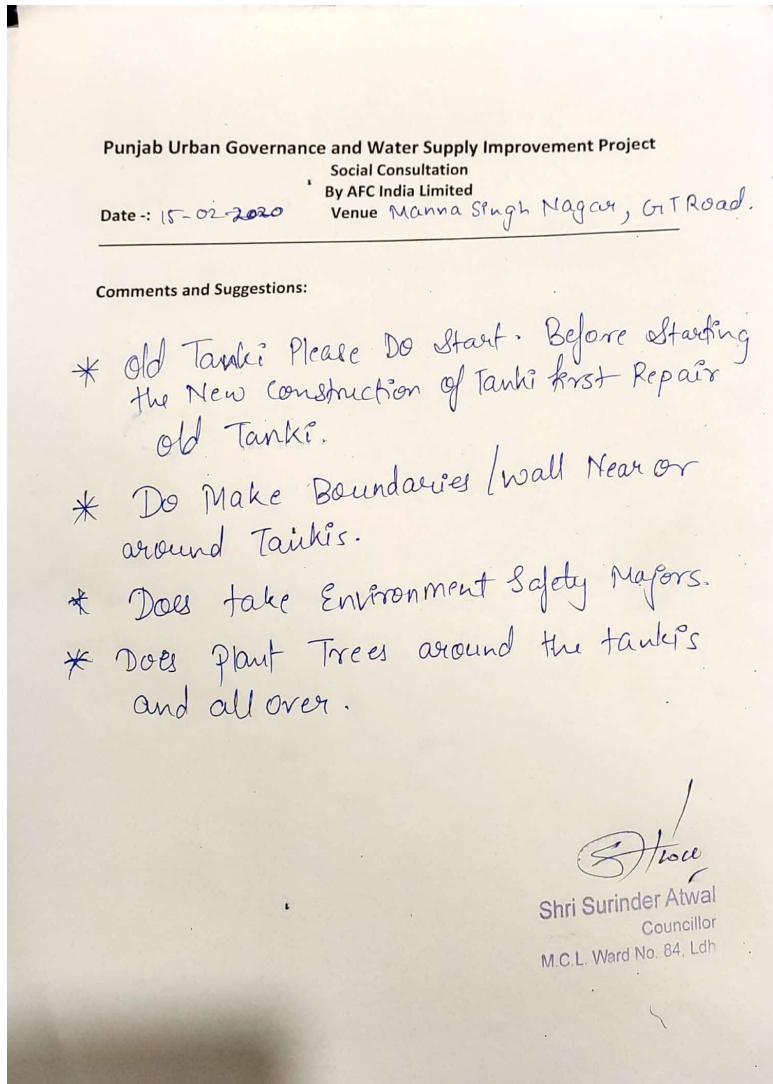 Punjab Urban Governance and Water Supply Improvement Project
Social Consultation
By AFC India Limited
Date -: 15-02-2020 Venue Manna Singh Nagar, GT Road.
Comments and Suggestions:
* old Tanki Please Do Start. Before Starting
the New Construction of Tanki first Repair
old Tanki.
* Do Make Boundaries / wall Near or
around Tankis.
* Does take Environment Safety Majors.
* Does Plant Trees around the tankis
and all over.
Shri Surinder Atwal
Councillor
M.C.L. Ward No. 84, Ldh